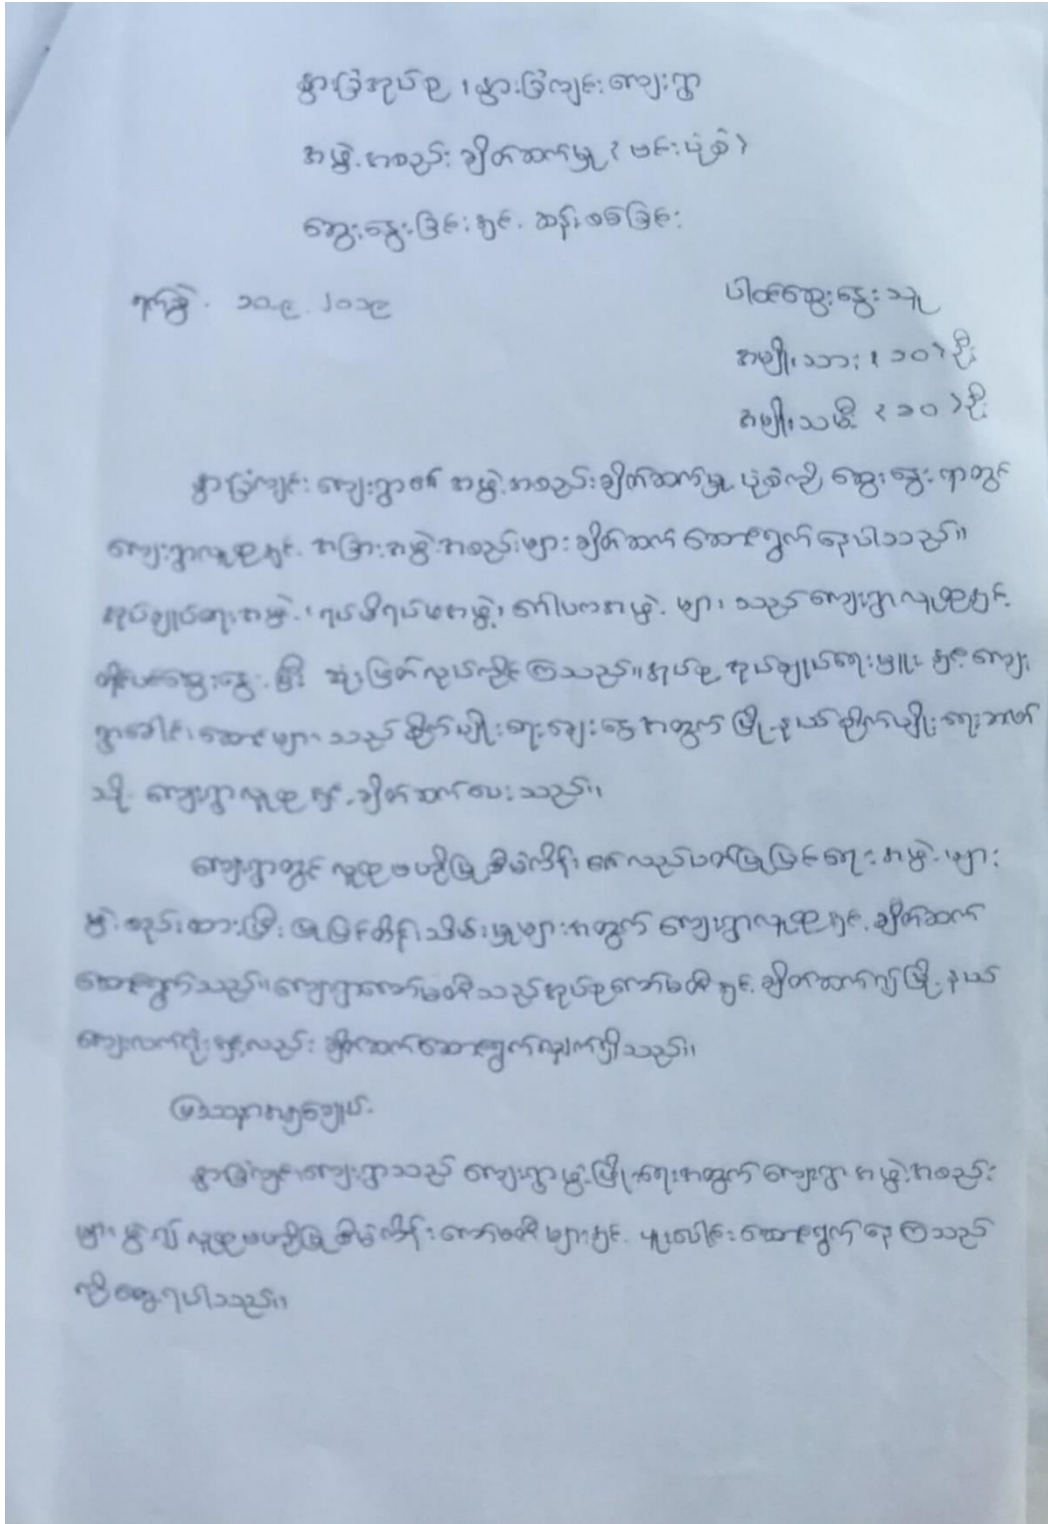 နွားခြံအုပ်စု ၊ နွားခြံကျင်းကျေးရွာ
အဖွဲ့အစည်း ချိတ်ဆက်မှု ( ဗင်းပုံစံ )
ဆွေးနွေးခြင်းနှင့် ဆန်းစစ်ခြင်း
ရက်စွဲ ၁၁.၉.၂၀၁၉
ပါဝင်ဆွေးနွေးသူ
အမျိုးသား ( ၁၀ ) ဦး
အမျိုးသမီး ( ၁၀ ) ဦး
နွားခြံကျင်းကျေးရွာ၏ အဖွဲ့အစည်းချိတ်ဆက်မှု ပုံစံကို ဆွေးနွေးရာတွင်
ကျေးရွာလူထုနှင့် အခြားအဖွဲ့အစည်းများ ချိတ်ဆက် ဆောင်ရွက်နေပါသည်။
အုပ်ချုပ်ရေးအဖွဲ့၊ ရပ်မိရပ်ဖအဖွဲ့၊ ဂေါပကအဖွဲ့ များသည် ကျေးရွာလူထုနှင့်
တိုင်ပင်ဆွေးနွေးပြီး ဆုံးဖြတ်လုပ်ကိုင်ကြသည်။ အုပ်စု အုပ်ချုပ်ရေးမှူး နှင့် ကျေး
ရွာခေါင်းဆောင်များသည် စိုက်ပျိုးရေးချေးငွေအတွက် မြို့နယ်စိုက်ပျိုးရေးဘဏ်
သို့ ကျေးရွာလူထုနှင့် ချိတ်ဆက်ပေးသည်။
ကျေးရွာတွင် လူထုဗဟိုပြုစီမံကိန်း၏ လည်ပတ်ပြုပြင်ရေးအဖွဲ့များ
ဖွဲ့စည်းထားပြီး ပြုပြင်ထိန်းသိမ်းမှုများအတွက် ကျေးရွာလူထုနှင့် ချိတ်ဆက်
ဆောင်ရွက်သည်။ ကျေးရွာကော်မတီသည် အုပ်စုကော်မတီနှင့် ချိတ်ဆက်၍ မြို့နယ်
ကျေးလက်ဦးစီးနှင့်လည်း ချိတ်ဆက်ဆောင်ရွက်လျှက်ရှိသည်။
ပြဿနာအနှစ်ချုပ်
နွားခြံကျင်းကျေးရွာသည် ကျေးရွာဖွံ့ဖြိုးရေးအတွက် ကျေးရွာ အဖွဲ့အစည်း
များ ဖွဲ့၍ လူထုဗဟိုပြုစီမံကိန်း ကော်မတီများနှင့် ပူးပေါင်းဆောင်ရွက်နေကြသည်
ကို တွေ့ရပါသည်။